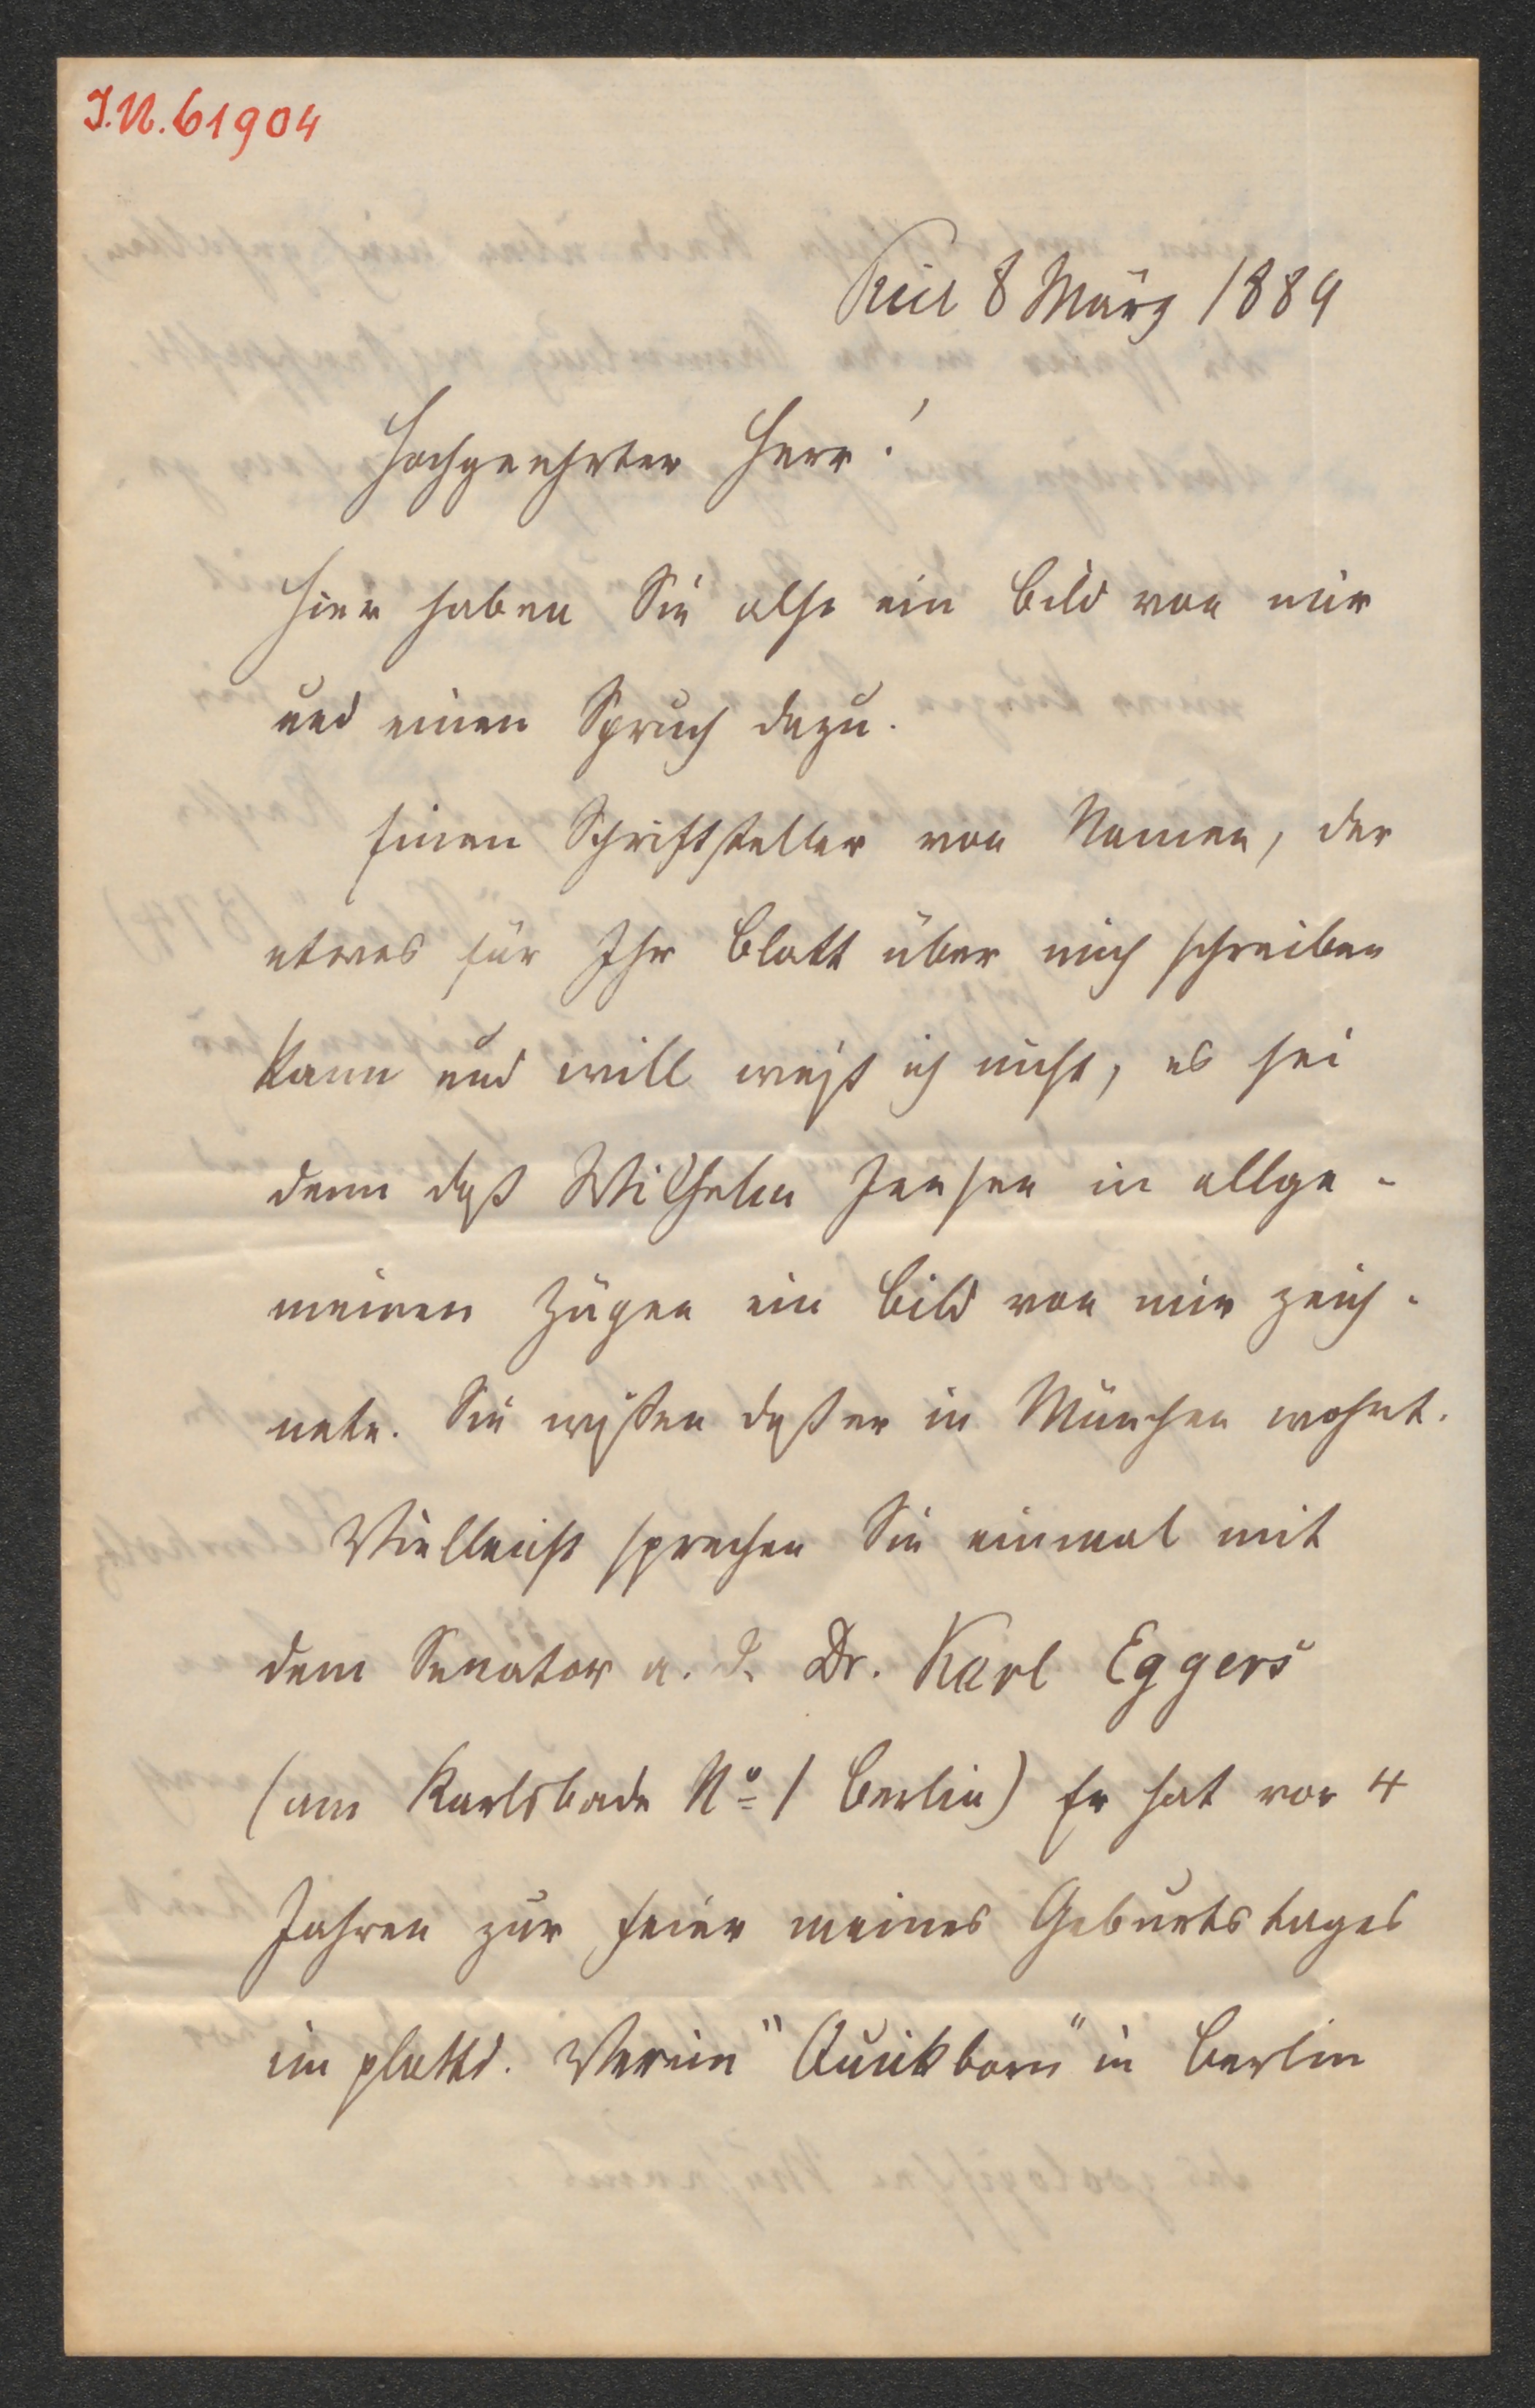 I.N. 61904
Kiel 8 März 1889
Hochgeehrter Herr!
Hier haben Sie also ein Bild von mir
und einen Spruch dazu.
Einen Schriftsteller von Namen, der
etwas für Ihr Blatt über mich schreiben
kann und will weiß ich nicht, es sei
denn daß Wilhelm Jensen in allge-
meinen Zügen ein Bild von mir zeich-
nete. Sie wißen daß er in München wohnt.
Vielleicht sprechen Sie einmal mit
dem Senator a. D. Dr. Karl Eggers
(am Karlsbade No 1 Berlin) Er hat vor 4
Jahren zur Feier meines Geburtstages
im plattd. Verein "Quickborn" in Berlin